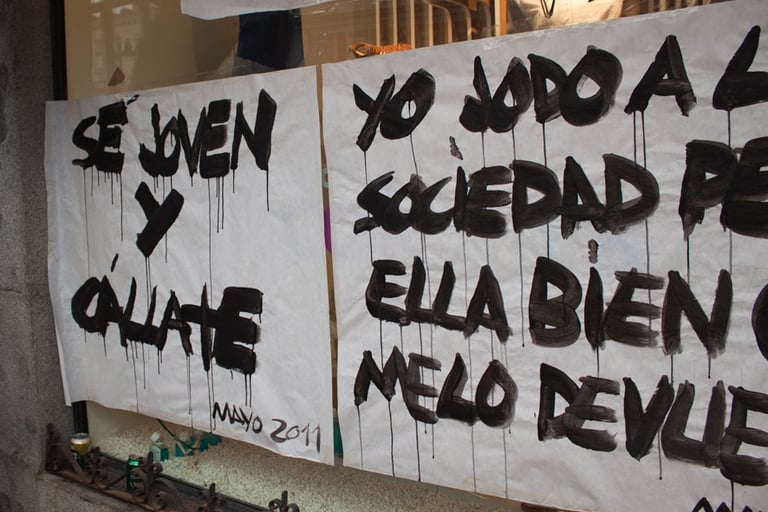 SÉ JOVEN
Y
CÁLLATE
MAYO 2011
YO JODO A L
SOCIEDAD PE
ELLA BIEN
MELO DEVUE